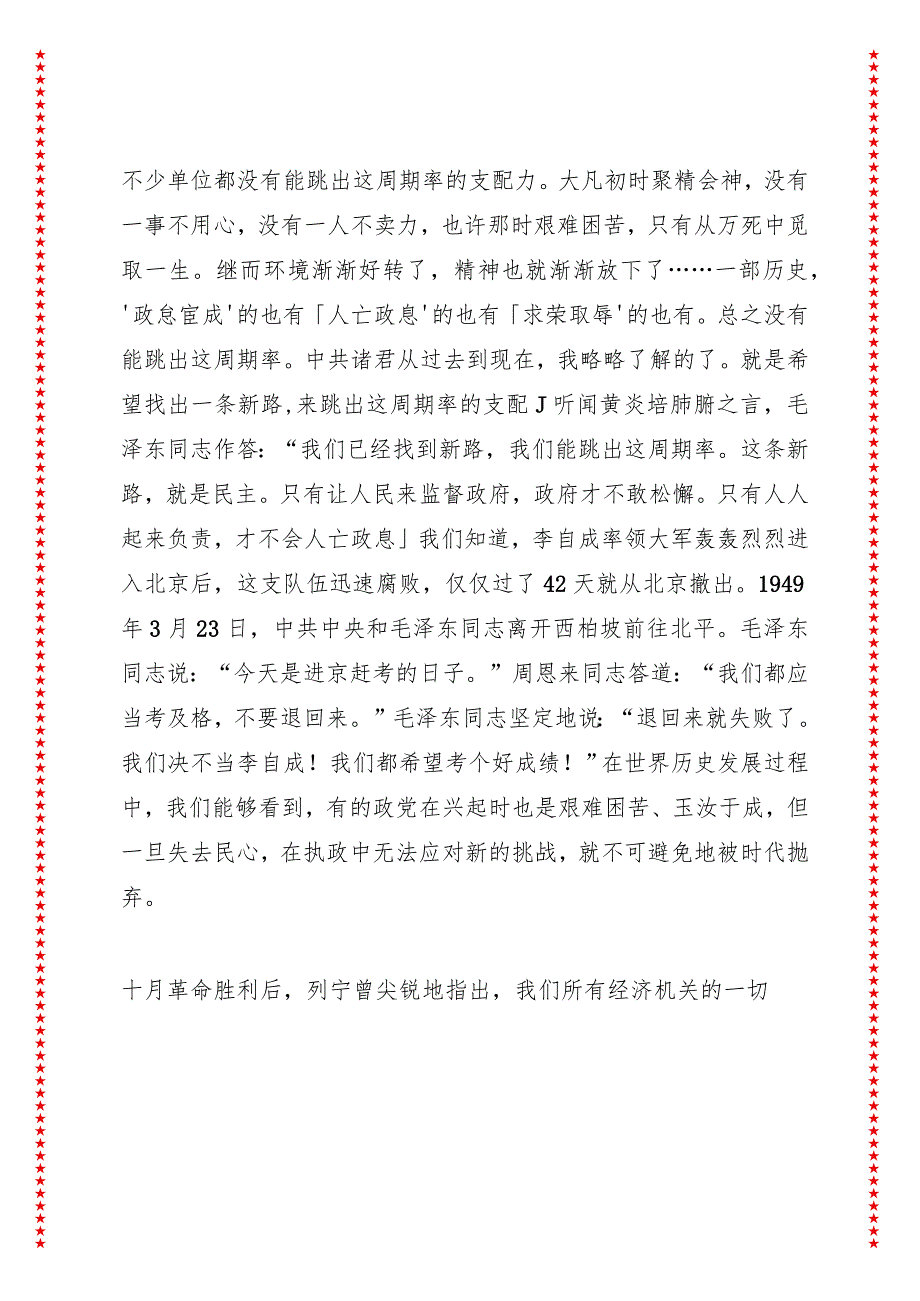 不少单位都没有能跳出这周期率的支配力。大凡初时聚精会神，没有
一事不用心，没有一人不卖力，也许那时艰难困苦，只有从万死中觅
取一生。继而环境渐渐好转了，精神也就渐渐放下了……一部历史，
'政怠宦成'的也有「人亡政息'的也有「求荣取辱'的也有。总之没有
能跳出这周期率。中共诸君从过去到现在，我略略了解的了。就是希
望找出一条新路,来跳出这周期率的支配J听闻黄炎培肺腑之言，毛
泽东同志作答：“我们已经找到新路，我们能跳出这周期率。这条新
路，就是民主。只有让人民来监督政府，政府才不敢松懈。只有人人
起来负责，才不会人亡政息」我们知道，李自成率领大军轰轰烈烈进
入北京后，这支队伍迅速腐败，仅仅过了42天就从北京撤出。1949
年3月23日，中共中央和毛泽东同志离开西柏坡前往北平。毛泽东
同志说：“今天是进京赶考的日子。”周恩来同志答道：“我们都应
当考及格，不要退回来。”毛泽东同志坚定地说：“退回来就失败了。
我们决不当李自成！我们都希望考个好成绩！”在世界历史发展过程
中，我们能够看到，有的政党在兴起时也是艰难困苦、玉汝于成，但
一旦失去民心，在执政中无法应对新的挑战，就不可避免地被时代抛
弃。
十月革命胜利后，列宁曾尖锐地指出，我们所有经济机关的一切